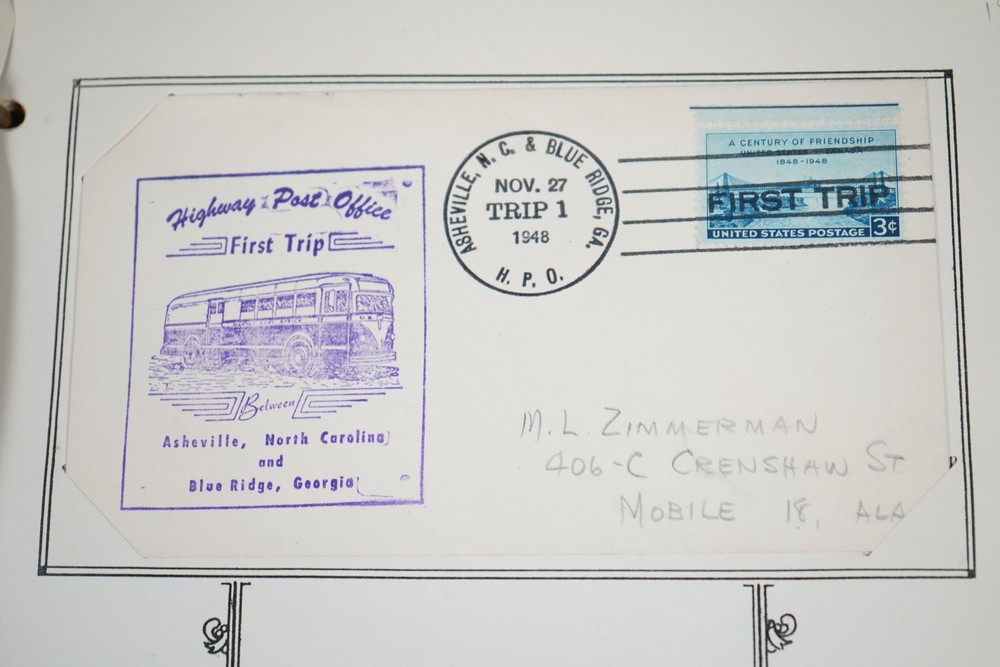 Highway Post Office
First Trip
Between
Asheville, North Carolina
and
Blue Ridge, Georgia
ASHEVILLE, N. C. & BLUE RIDGE, GA.
NOV. 27
TRIP 1
1948
H. P. O.
A CENTURY OF FRIENDSHIP
UNITED STATES CANADA
1848-1948
FIRST TRIP
UNITED STATES POSTAGE 3¢
M. L. ZIMMERMAN
406-C CRENSHAW ST
MOBILE 18, ALA